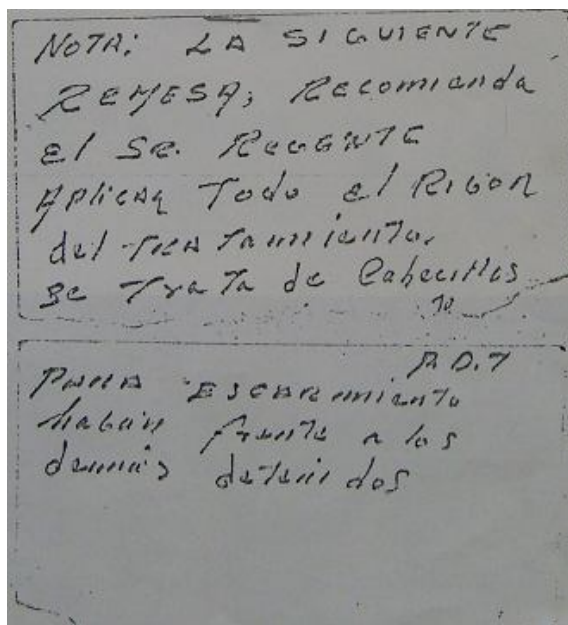 NOTA: LA SIGUIENTE
REMESA; Recomienda
el SR. REGENTE
APLICAR Todo el RIGOR
del TRATAmiento.
Se Trata de Cabecillas
PARA ESCARmiento
frente a los
demás detenidos